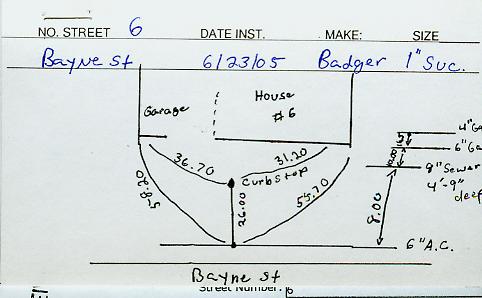 NO. STREET 6 DATE INST. MAKE: SIZE
Bayne st 6/23/05 Badger 1" Suc.
Garage
House
#6
4" Ga
6" Ga
36.70 31.20
Curbstop
8" Sewer
4'-9"
deep
58.20 26.00 55.70 8.00
6" A.C.
Bayne st
Street Number: 6